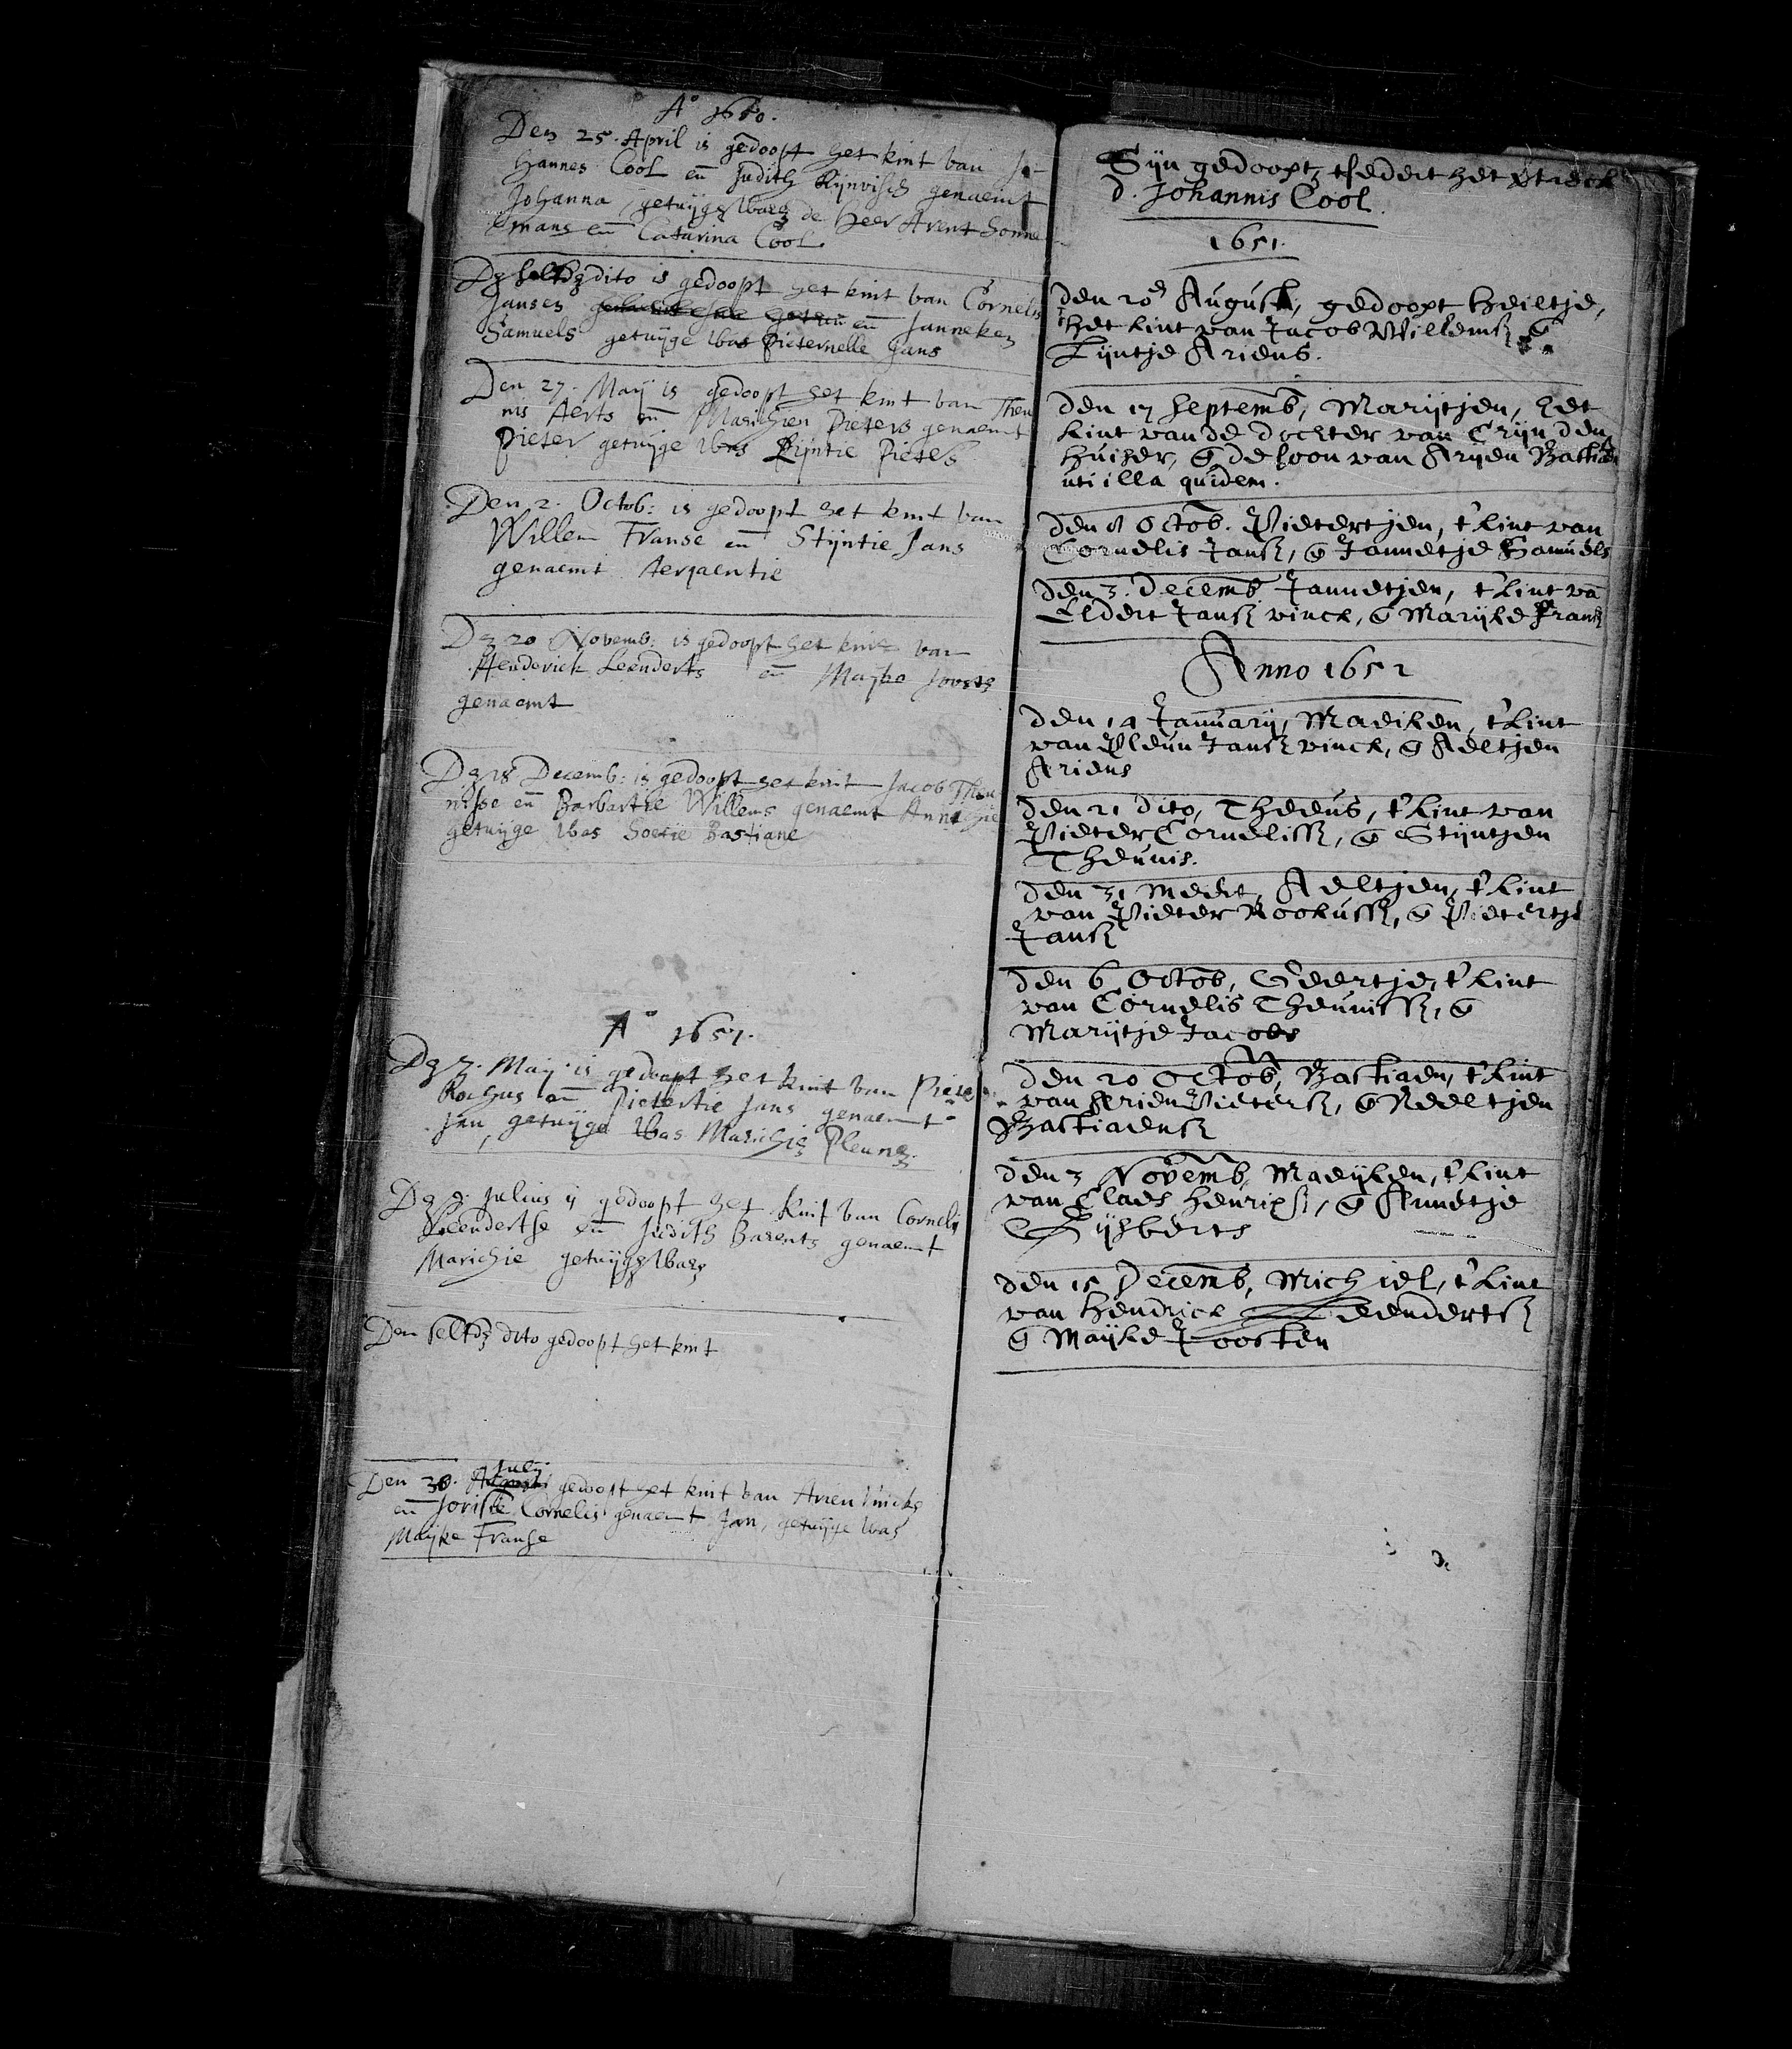 Aº 1650.
Den 25. April is gedoopt het kint van Jo-
hannes Cool en Judith Rijnvisch genaemt
Johanna, getuijgen waren de Heer Arent Sonne
mans en Catarina Cool.
Den selven dito is gedoopt het kint van Cornelis
Jansen en Janneken
Samuels getuijge was Pieternelle Jans
Den 27. Maij is gedoopt het kint van Theu
nis Aerts en Marichien Pieters genaemt
Pieter getuijge was Pijntie Pieters
Den 2. Octob: is gedoopt het kint van
Willem Franse en Stijntie Jans
genaemt
Den 20 Novemb: is gedoopt het kint van
Henderick Leenderts en Maijke Joosten
genaemt
Den 18 Decemb: is gedoopt het kint Jacob Theu
nisse en Barbartie Willems genaemt Annichie
getuijge was Soetie Bastiane
Aº 1651.
Den 7. Maij is gedoopt het kint van Pieter
Rochus en Pietertie Jans genaemt
Jan, getuijge was Marichie Pleunen.
Den 9. Julius is gedoopt het kint van Cornelis
Leendertse en Judith Barents genaemt
Marichie getuijgen waren
Den selven dito gedoopt het kint
Julij
Den 30. Augusti gedoopt het kint van Arien Vincke
en Corneliss genaemt Jan, getuijge was
Maijke Franse
Sijn gedoopt, tsedert het vertreck
d. Johannis Cool.
1651.
den 20n August, gedoopt Heiltje,
het kint van Jacob Willemsz &
Lijntje Ariens.
den 17 Septemb, Marijtjen, het
kint van de dochter van Crijn den
Huiser, & de soon van Arijen Bastiaen
uti illa quidem.
den 8 Octob. Pietertjen, t'kint van
Cornelis Jansz, & Jannetje Samuels
den 3. Decemb. Jannetjen, t'kint va
Eldert Jansz vinck, & Marijke Fransz
Anno 1652
den 14 Januarij, Maeiken, t'kint
van Pleun Jansz vinck, & Aeltjen
Ariens
den 21 dito, Theeus, t'kint van
Pieter Cornelissz, & Stijntjen
Theunis.
den 31 Meert, Aeltjen, t'kint
van Pieter Rookussz, & Pietertje
Jansz
den 6 Octob, Geertje, t'kint
van Cornelis Theunissz, &
Marijtje Jacobs
den 20 Octob, Bastiaen, t'kint
van Arien Pietersz, & Neeltjen
Bastiaensz
den 3 Novemb, Maeijken, t'kint
van Claes Henripsz, & Annetje
Gijsberts
den 15 Decemb, Michiel, t'kint
van Hendrick Leendertsz
& Maijke Joosten